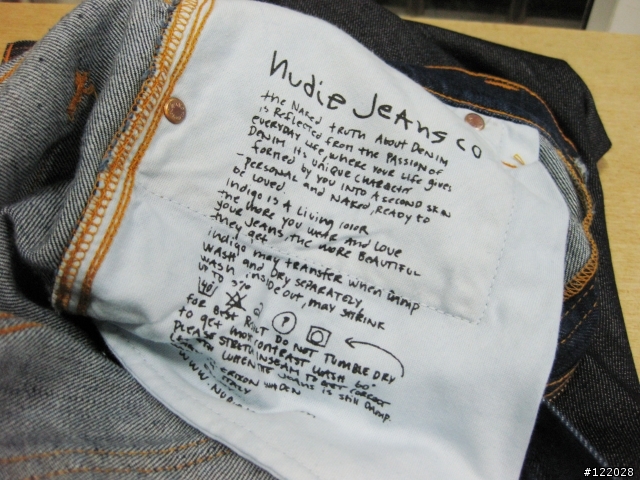 Nudie Jeans co
the NAKED truth About DENIM
is Reflected from the PASSION of
EVERYDAY LiFE, where your LiFE gives
DENIM its UNIQUE CHARACTER
formed by you INTO A SECOND SKIN
-PERSONAL and NAKED, READY to
be LOVED.
Indigo is A Living color
the more you WEAR AND LOVE
your JEANS, the MORE BEAUTIFUL
they get
indigo may TRANSFER when DAMP
WASH and DRY SEPARATELY
WASH inside out, may SHRINK
up to 3%
40 P
FOR BEST DO NOT TUMBLE DRY
to get WASH 60°
PLEASE STRETCH INSEAM TO GET CORRECT
WHEN THE JEANS is still DAMP.
ITALY
WWW.NUDIE
#122028